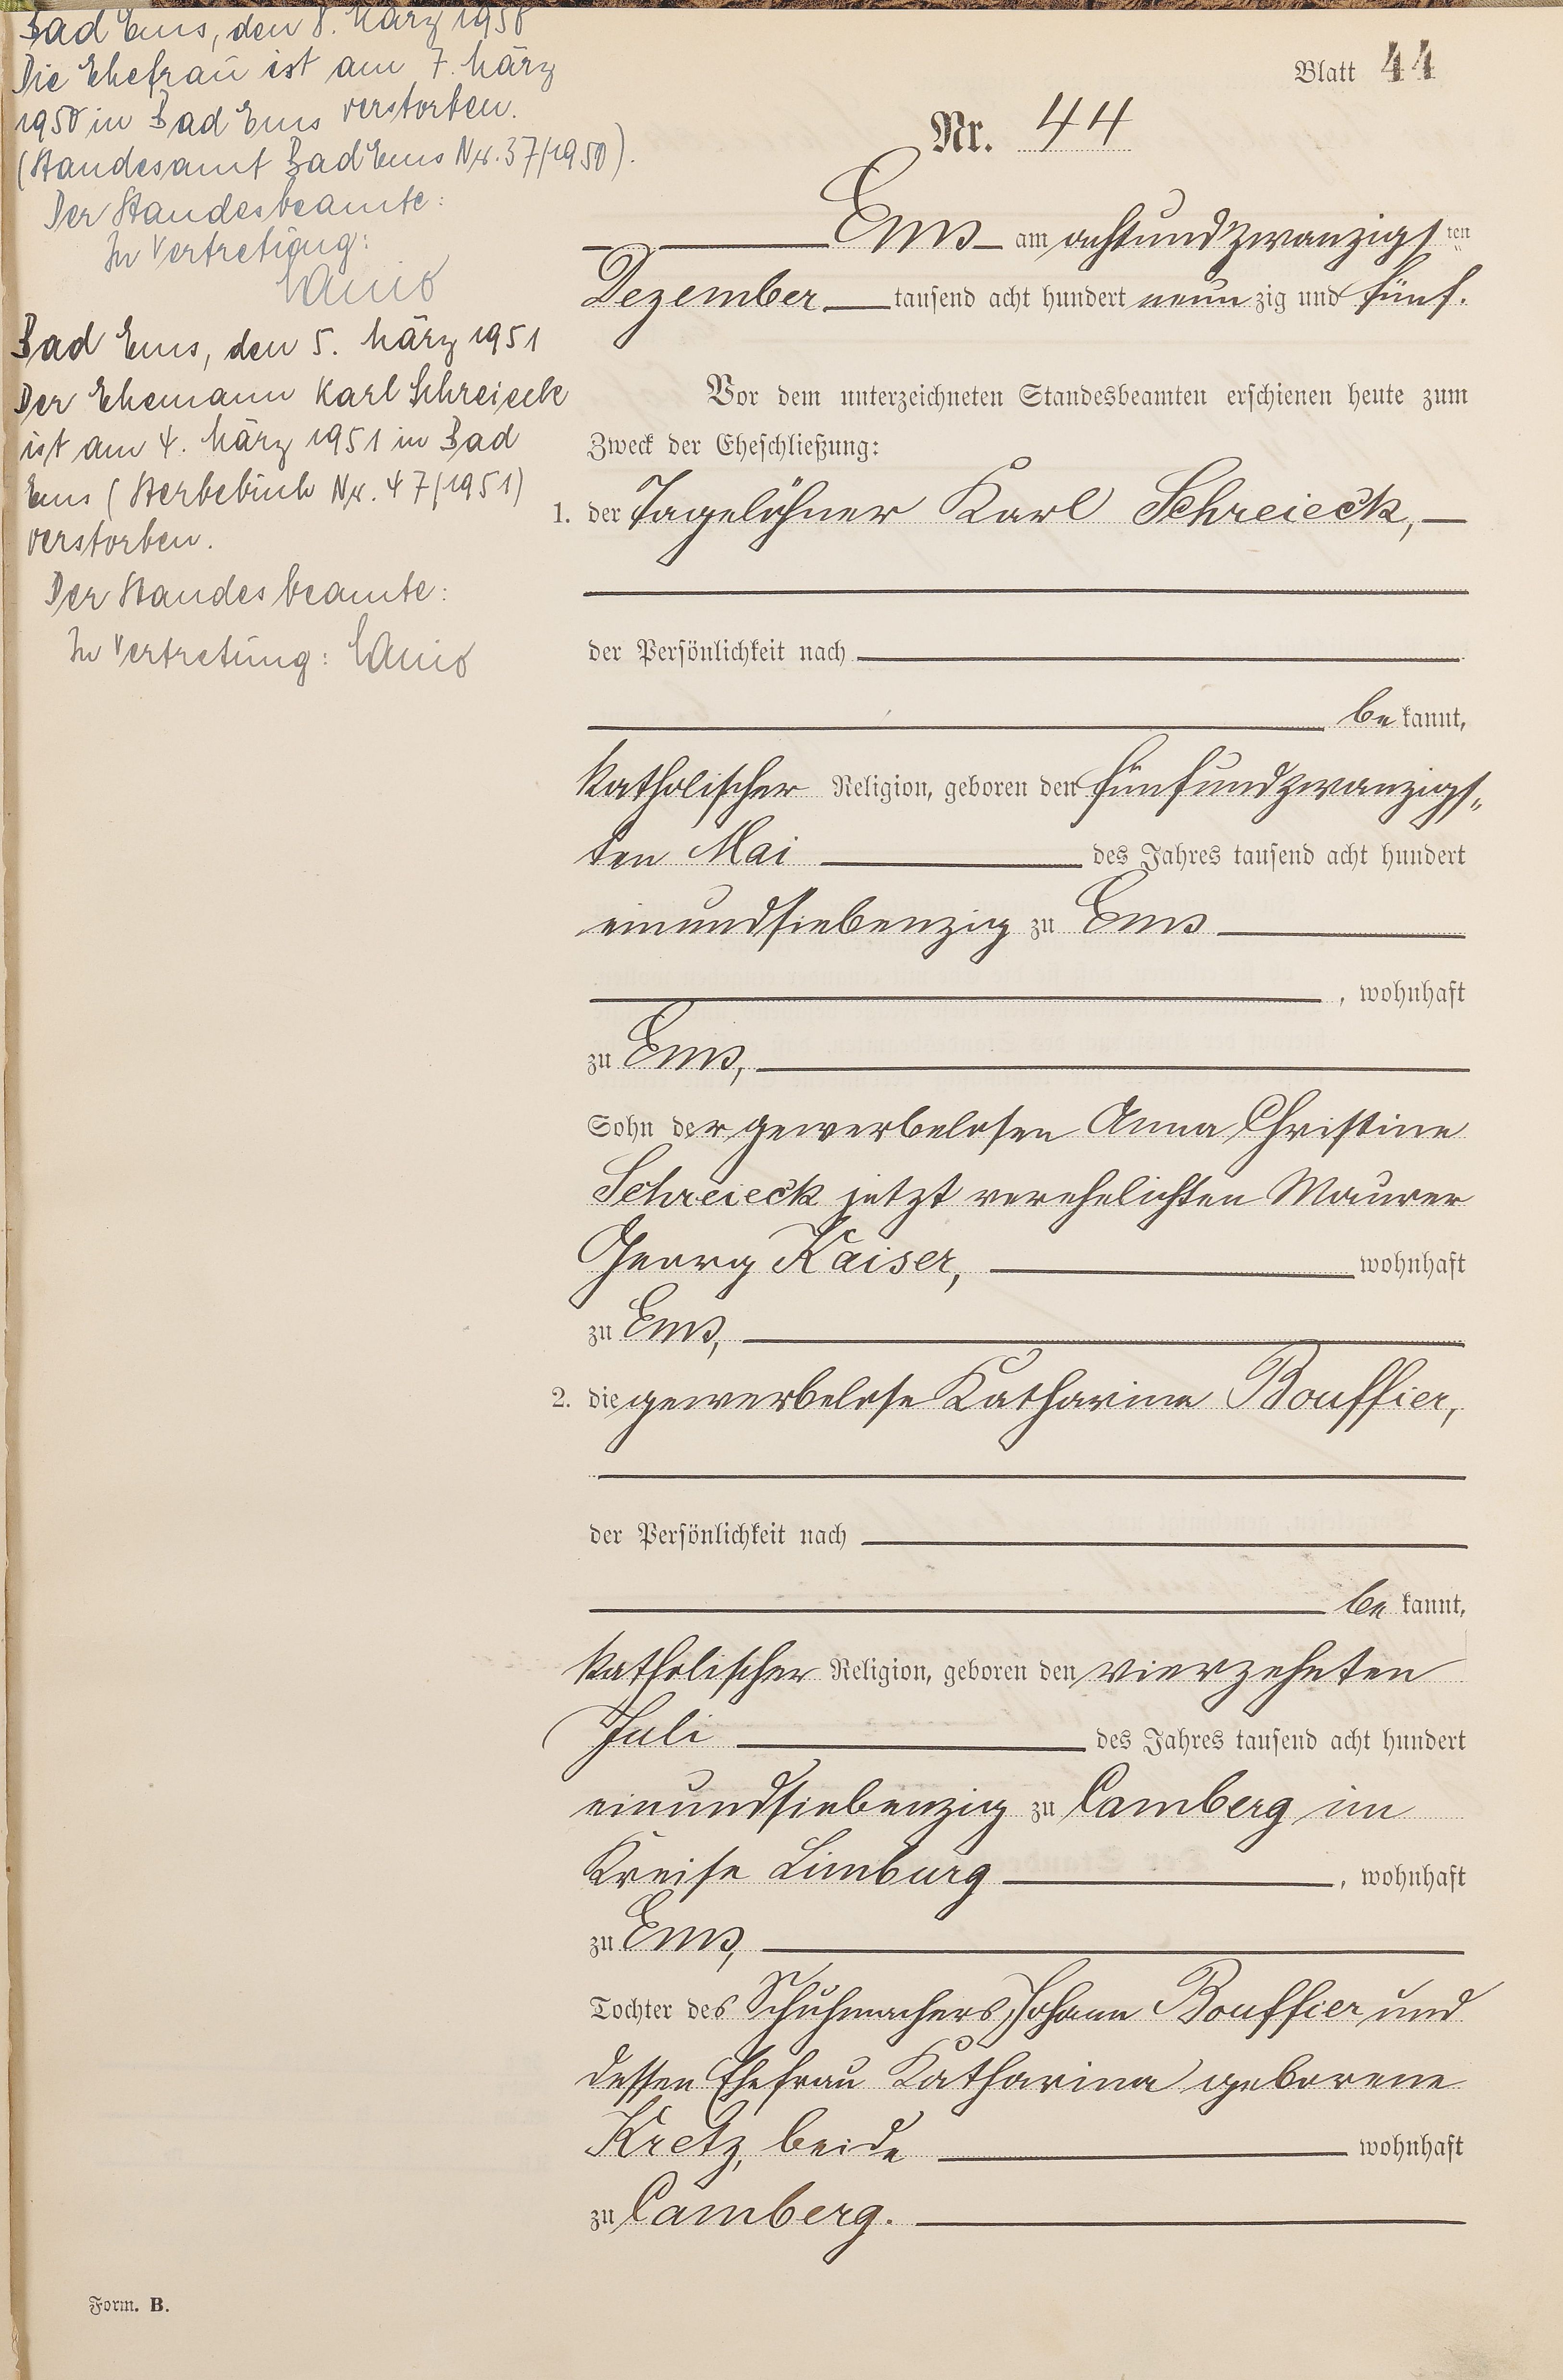 Bad Ems, den 8. März 1950
Die Ehefrau ist am 7. März
1950 in Bad Ems verstorben.
(Standesamt Bad Ems Nr. 37/1950).
Der Standesbeamte:
In Vertretung:
Bad Ems, den 5. März 1951
Der Ehemann Karl Schreieck
ist am 4. März 1951 in Bad
Ems (Sterbebuch Nr. 47/1951)
verstorben.
Der Standesbeamte:
In Vertretung:
Blatt 44
Nr. 44
Ems am achtundzwanzigs ten
Dezember tausend acht hundert neun zig und fünf.
Vor dem unterzeichneten Standesbeamten erschienen heute zum
Zweck der Eheschließung:
1. der Tagelöhner Karl Schreieck,
der Persönlichkeit nach
be kannt,
katholischer Religion, geboren den fünfundzwanzigs„
ten Mai des Jahres tausend acht hundert
einundsiebenzig zu Ems
, wohnhaft
zu Ems,
Sohn der gewerbelosen Anna Christine
Schreieck jetzt verehelichten Maurer
Georg Kaiser, wohnhaft
zu Ems,
2. die gewerbelose Katharina Bouffier,
der Persönlichkeit nach
be kannt,
katholischer Religion, geboren den vierzehnten
Juli des Jahres tausend acht hundert
einundsiebenzig zu Camberg im
Kreise Limburg , wohnhaft
zu Ems,
Tochter des Schuhmachers Johann Bouffier und
dessen Ehefrau Katharina geborene
Kretz, beide wohnhaft
zu Camberg.
Form. B.